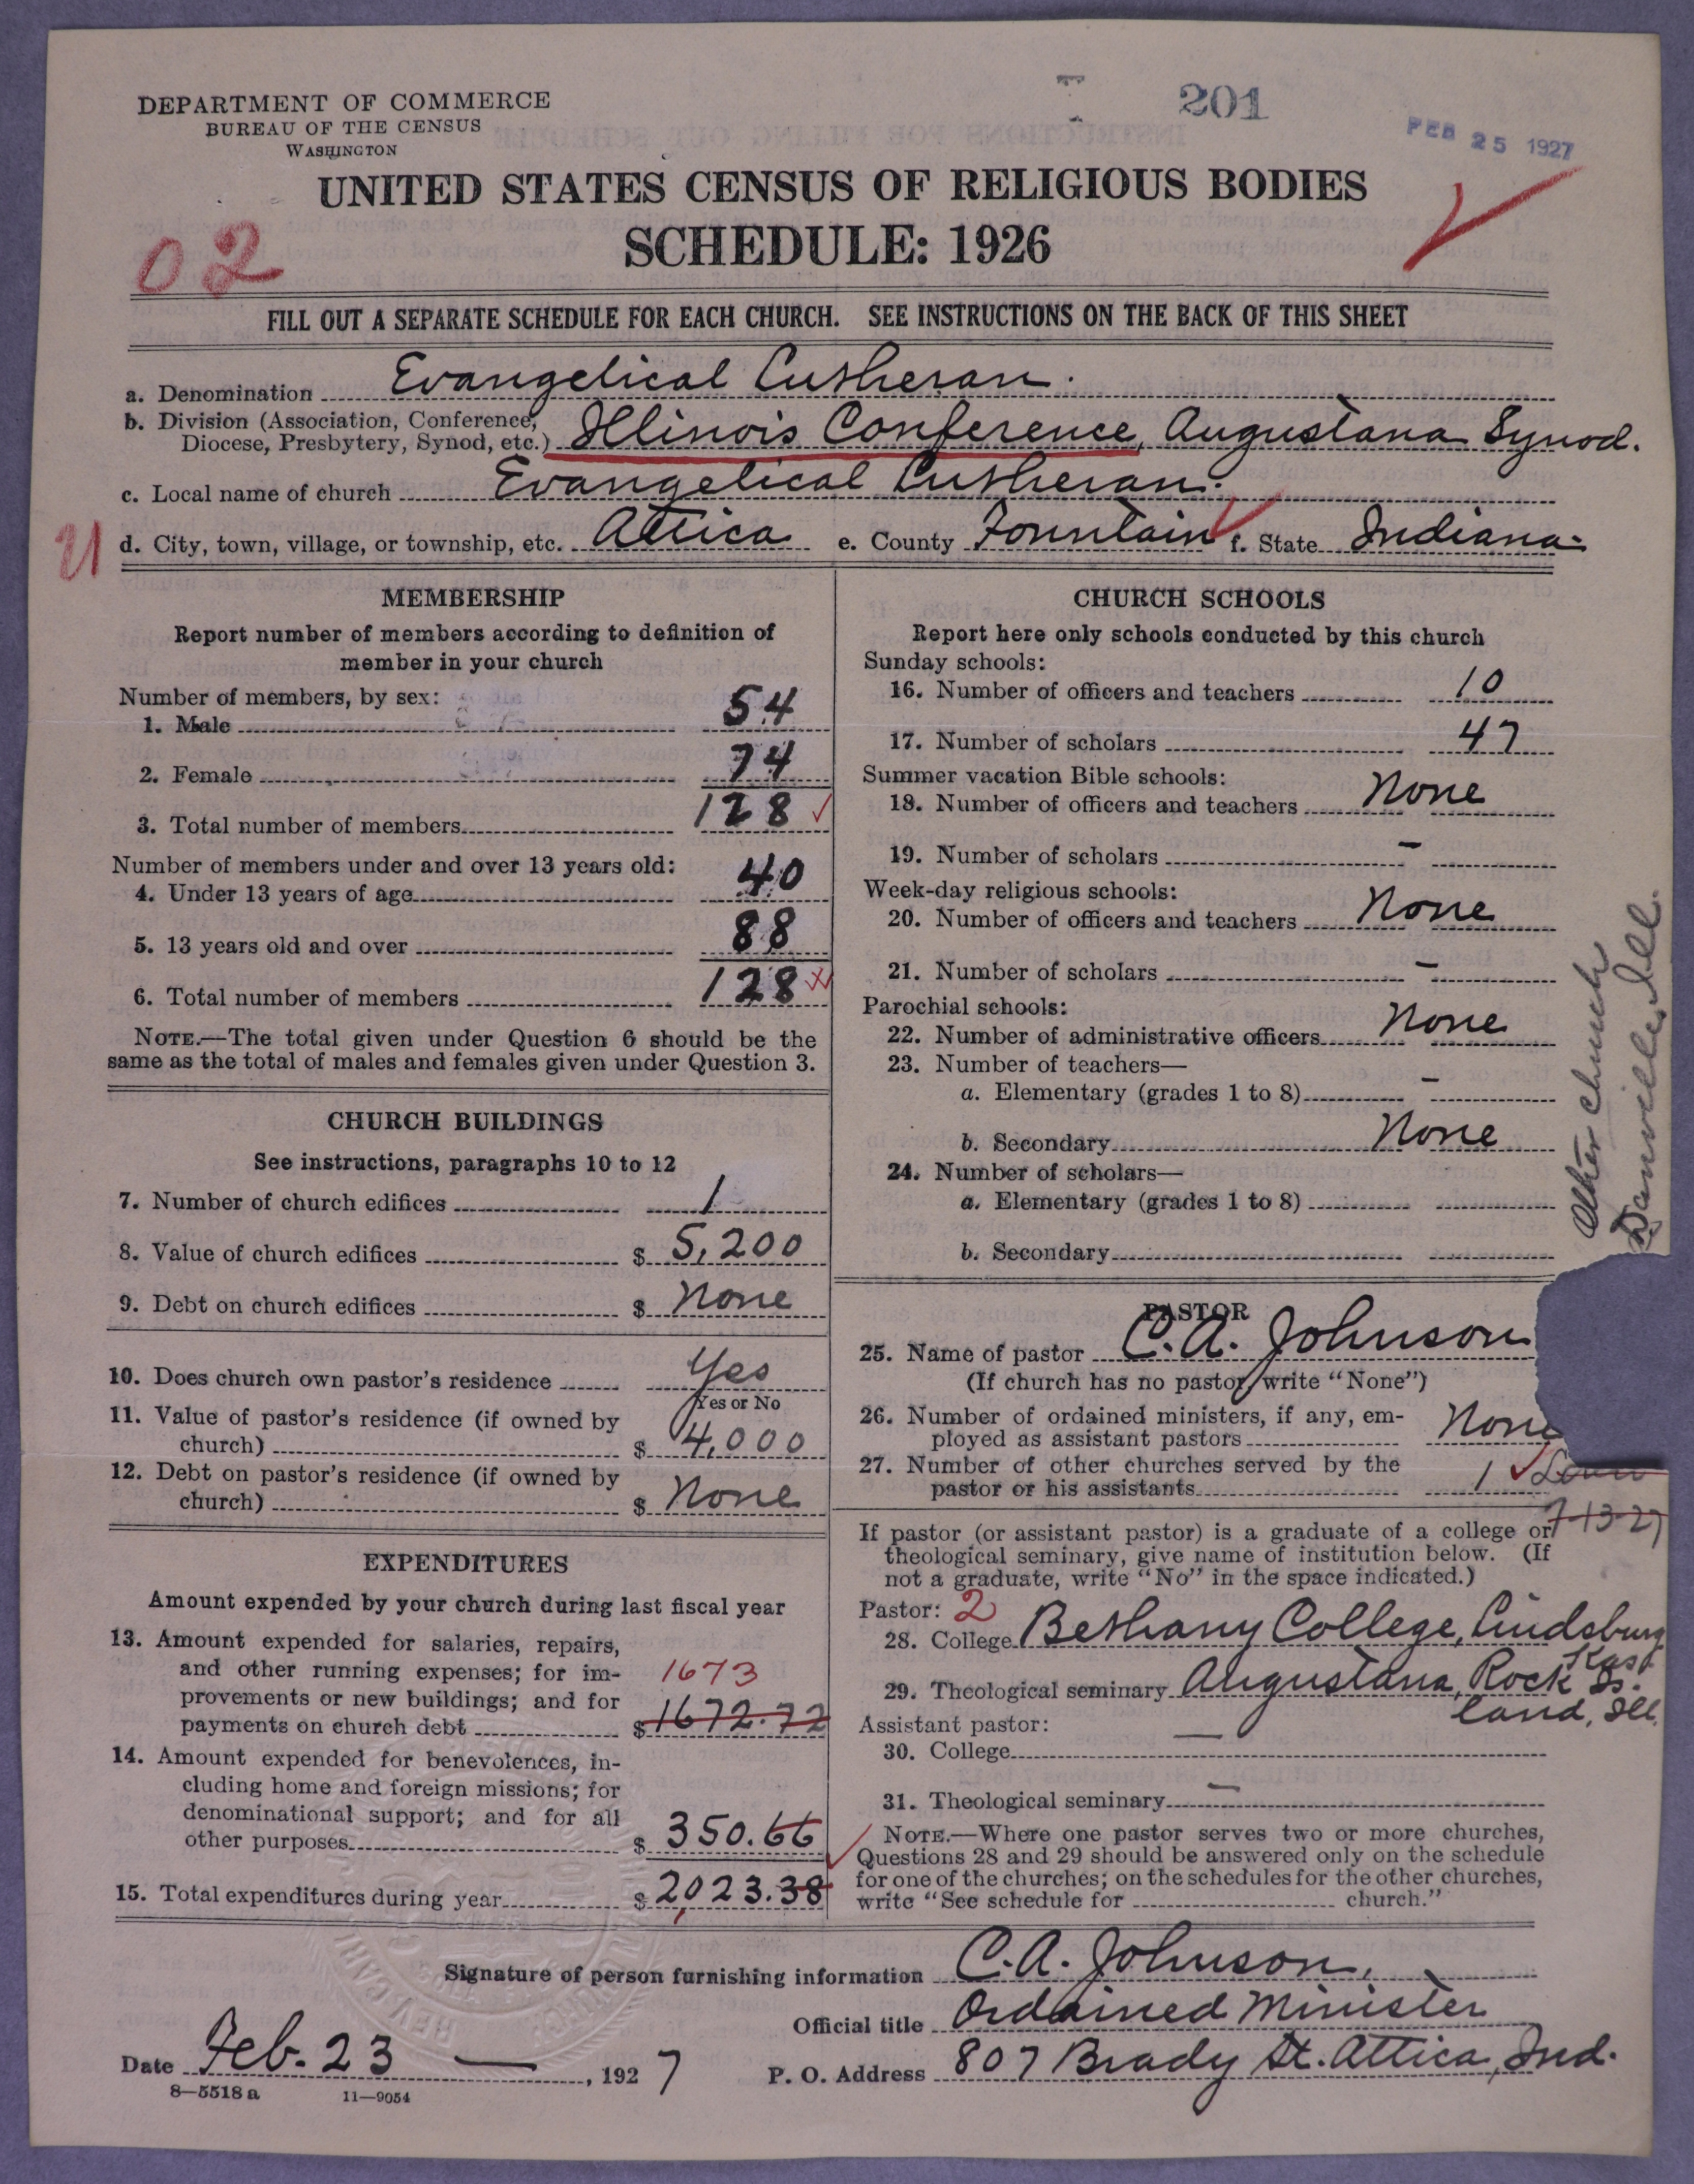 DEPARTMENT OF COMMERCE
BUREAU OF THE CENSUS
WASHINGTON
201
FEB 25 1927
UNITED STATES CENSUS OF RELIGIOUS BODIES
SCHEDULE: 1926
02
FILL OUT A SEPARATE SCHEDULE FOR EACH CHURCH. SEE INSTRUCTIONS ON THE BACK OF THIS SHEET
a. Denomination Evangelical Lutheran.
b. Division (Association, Conference, Diocese, Presbytery, Synod, etc.) Illinois Conference, Augustana Synod.
c. Local name of church Evangelical Lutheran.
d. City, town, village, or township, etc. Attica e. County Fountain f. State Indiana
MEMBERSHIP
Report number of members according to definition of
member in your church
Number of members, by sex:
1. Male 54
2. Female 74
3. Total number of members 128
Number of members under and over 13 years old:
4. Under 13 years of age 40
5. 13 years old and over 88
6. Total number of members 128
NOTE.—The total given under Question 6 should be the
same as the total of males and females given under Question 3.
CHURCH BUILDINGS
See instructions, paragraphs 10 to 12
7. Number of church edifices 1
8. Value of church edifices $ 5,200
9. Debt on church edifices $ None
10. Does church own pastor's residence Yes
Yes or No
11. Value of pastor's residence (if owned by
church) $ 4,000
12. Debt on pastor's residence (if owned by
church) $ None
EXPENDITURES
Amount expended by your church during last fiscal year
13. Amount expended for salaries, repairs,
and other running expenses; for im-
provements or new buildings; and for 1673
payments on church debt $ 1672.72
14. Amount expended for benevolences, in-
cluding home and foreign missions; for
denominational support; and for all
other purposes $ 350.66
15. Total expenditures during year $ 2,023.38
CHURCH SCHOOLS
Report here only schools conducted by this church
Sunday schools:
16. Number of officers and teachers 10
17. Number of scholars 47
Summer vacation Bible schools:
18. Number of officers and teachers None
19. Number of scholars -
Week-day religious schools:
20. Number of officers and teachers None
21. Number of scholars -
Parochial schools:
22. Number of administrative officers None
23. Number of teachers—
a. Elementary (grades 1 to 8) -
b. Secondary None
24. Number of scholars—
a. Elementary (grades 1 to 8)
b. Secondary
Other church
Danville, Ill.
PASTOR
25. Name of pastor C. A. Johnson
(If church has no pastor, write "None")
26. Number of ordained ministers, if any, em-
ployed as assistant pastors None
27. Number of other churches served by the
pastor or his assistants 1
7-13-27
If pastor (or assistant pastor) is a graduate of a college or
theological seminary, give name of institution below. (If
not a graduate, write "No" in the space indicated.)
Pastor: 2
28. College Bethany College, Lindsburg
Kas.
29. Theological seminary Augustana, Rock Is-
land, Ill.
Assistant pastor:
30. College —
31. Theological seminary —
NOTE.—Where one pastor serves two or more churches,
Questions 28 and 29 should be answered only on the schedule
for one of the churches; on the schedules for the other churches,
write "See schedule for church."
Signature of person furnishing information C. A. Johnson,
Official title Ordained Minister
Date Feb. 23 —, 1927 P. O. Address 807 Brady St. Attica, Ind.
8—5518 a 11—9054